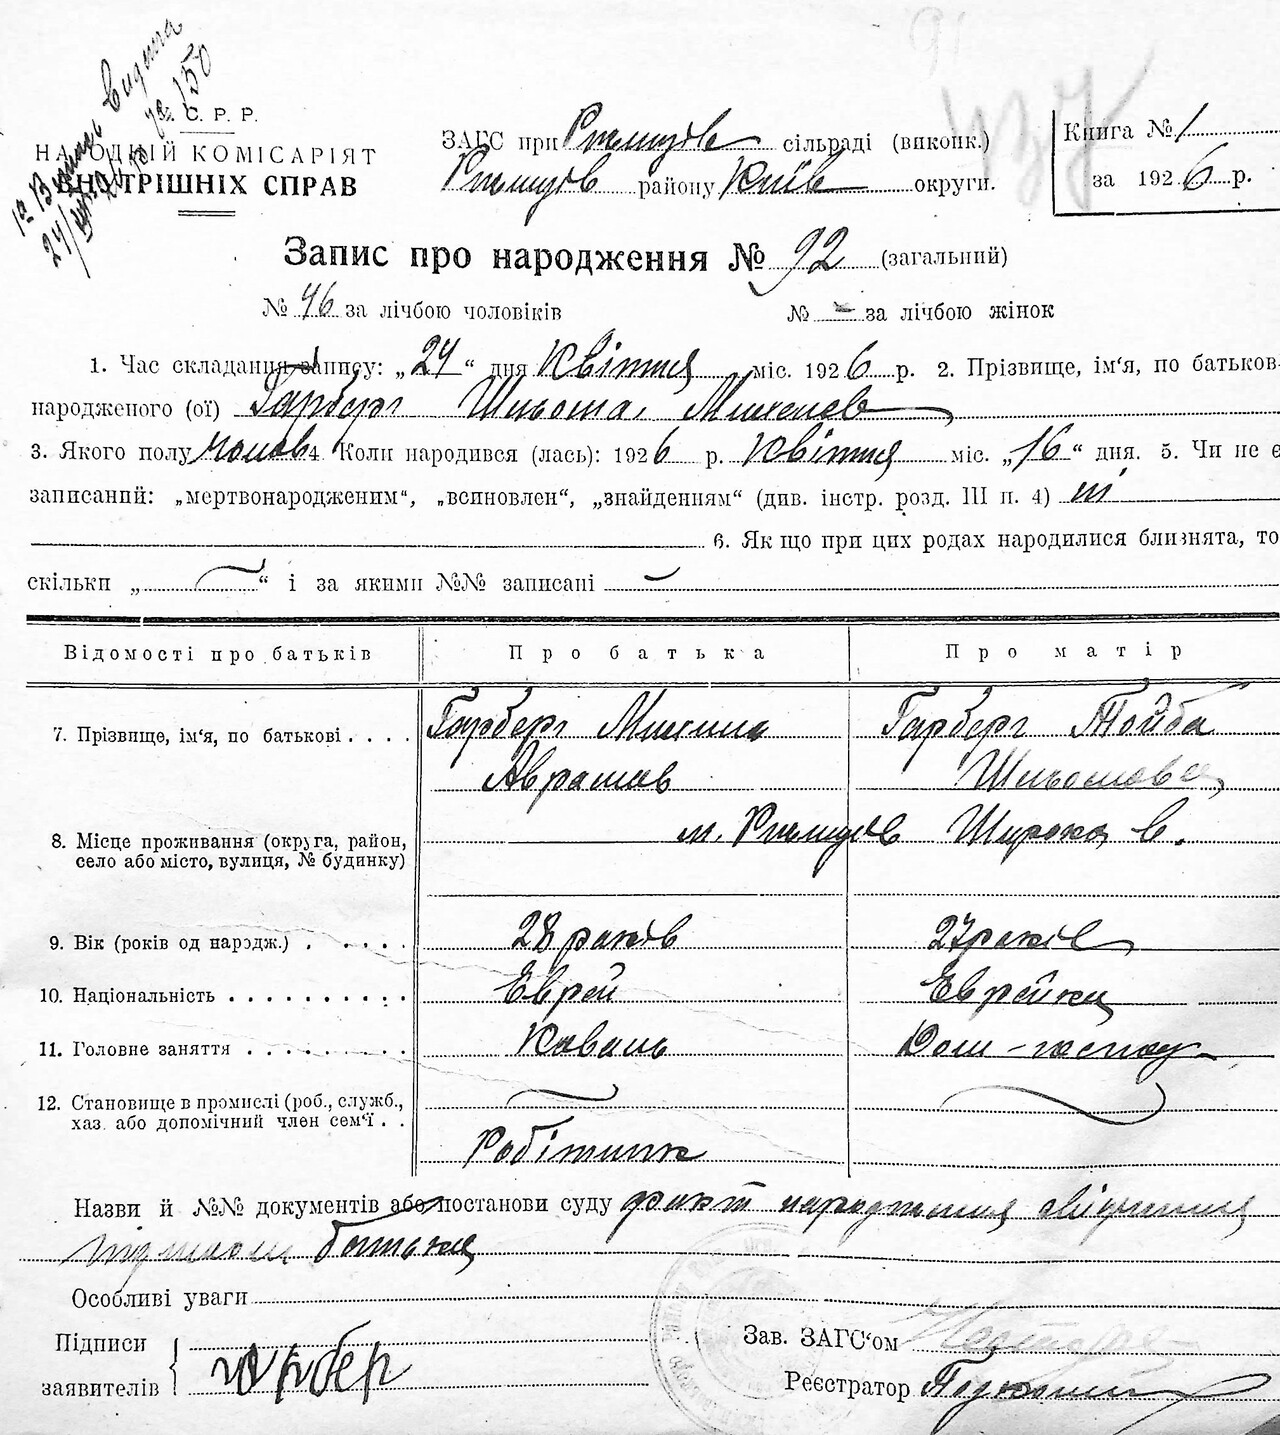 У. С. Р. Р.
НАРОДНІЙ КОМІСАРІЯТ
ВНУТРІШНІХ СПРАВ
ЗАГС при Ржищів сільраді (виконк.)
Ржищів району Київ округи.
Книга № 1
за 1926 р.
Запис про народження № 92 (загальний)
№ 46 за лічбою чоловіків № - за лічбою жінок
1. Час складання запису: „24“ дня Квітня міс. 1926 р. 2. Прізвище, ім‘я, по батьков
народженого (ої) Гарберг Шльома Михелев
3. Якого полу чолов 4. Коли народився (лась): 1926 р. Квітня міс. „16“ дня. 5. Чи не є
записаний: „мертвонародженим“, „всиновлен“, „знайденням“ (див. інстр. розд. III п. 4) ні
6. Якщо при цих родах народилися близнята, то
скільки „ “ і за якими №№ записані -
Відомості про батьків Про батька Про матір
7. Прізвище, ім‘я, по батькові Гарберг Гарберг Тойба
Аврамов Шльомовна
8. Місце проживання (округа, район, село або місто, вулиця, № будинку) м. Ржищів Широка в.
9. Вік (років од народж.) 28 років 27 років
10. Національність Еврей Еврейка
11. Головне заняття Коваль Дом-господ
12. Становище в промислі (роб., служб., хаз. або допомічний член сем‘ї
Робітник
Назви й №№ документів або постанови суду факт народження
батька
Особливі уваги
Підписи
заявителів Гарбер
Зав. ЗАГС‘ом
Реєстратор